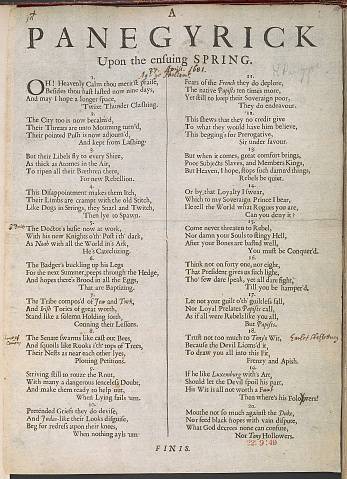 A
PANEGYRICK
Upon the ensuing SPRING.
1.
OH! Heavenly Calm thou meritst praise,
Besides thou hast lasted now nine days,
And may I hope a longer space,
'Twixt Thunder Clashing.
2.
The City too is now becalm'd,
Their Threats are into Mourning turn'd,
Their pointed Push is now adjourn'd,
And kept from Lashing.
3.
But their Libels fly to every Shire,
As thick as Atomes in the Air,
To ripen all their Brethren there,
For new Rebellion.
4.
This Disappointment makes them Itch,
Their Limbs are crampt with the old Stitch,
Like Dogs in Strings, they Snarl and Twitch,
Then lye to Spawn.
5.
The Doctor's busie now at work,
With his new Knights o'th' Post i'th' dark,
As Noah with all the World in's Ark,
He's Catechizing.
6.
The Badger's buckling up his Legs
For the next Summer, peeps through the Hedge,
And hopes there's Brood in all the Eggs,
That are Baptizing.
7.
The Tribe compos'd of Jew and Turk,
And Irish Tories of great worth,
Stand like a solemn Holding forth,
Conning their Lessons.
8.
The Senate swarms like casti our Bees,
And squools like Rooks i'th tops of Trees,
Their Nests as near each other lyes,
Plotting Petitions.
9.
Striving still to rouze the Rout,
With many a dangerous senceless Doubt,
And make them ready to help out,
When Lying fails 'um.
10.
Pretended Griefs they do devise,
And Judas-like their Looks disguise,
Beg for redress upon their knees,
When nothing ayls 'um.
11.
Fears of the French they do deplore,
The native Papists ten times more,
Yet still to keep their Soveraign poor,
They do endeavour.
12.
This shews that they no credit give
To what they would have him believe,
This begging's for Prerogative,
Sir under favour.
13.
But when it comes, great comfort brings,
Poor Subjects Slaves, and Members Kings,
But Heaven, I hope, stops such damn'd things,
Rebels be quiet.
14.
Or by, that Loyalty I swear,
Which to my Soveraign Prince I bear,
I'le tell the World what Rogues you are,
Can you deny it?
15.
Come never threaten to Rebel,
Nor damn your Souls to Kings Hell,
After your Bones are basted well,
You must be Conquer'd.
16.
Think not on forty one, nor eight,
That President gives us such light,
Tho' few dare speak, yet all dare fight,
Till you be hamper'd.
17.
Let not your guilt o'th' guiltless fall,
Nor Loyal Prelates Papists call,
As if all were Rebels like you all,
But Papists.
18.
Trust not too much to Tony's Wit,
Because the Devil Licens'd it,
To draw you all into this Fit,
Frenzy and Apish.
19.
If he like Luxemburg with's Art,
Should let the Devil spoil his part,
His Wit is all not worth a Fart
Then where's his Followers!
20.
Mouthe not so much against the Duke,
Nor feed black hopes with vain dispute,
What God decrees none can confute,
Nor Tony Hollowers.
FINIS.
22.9:40